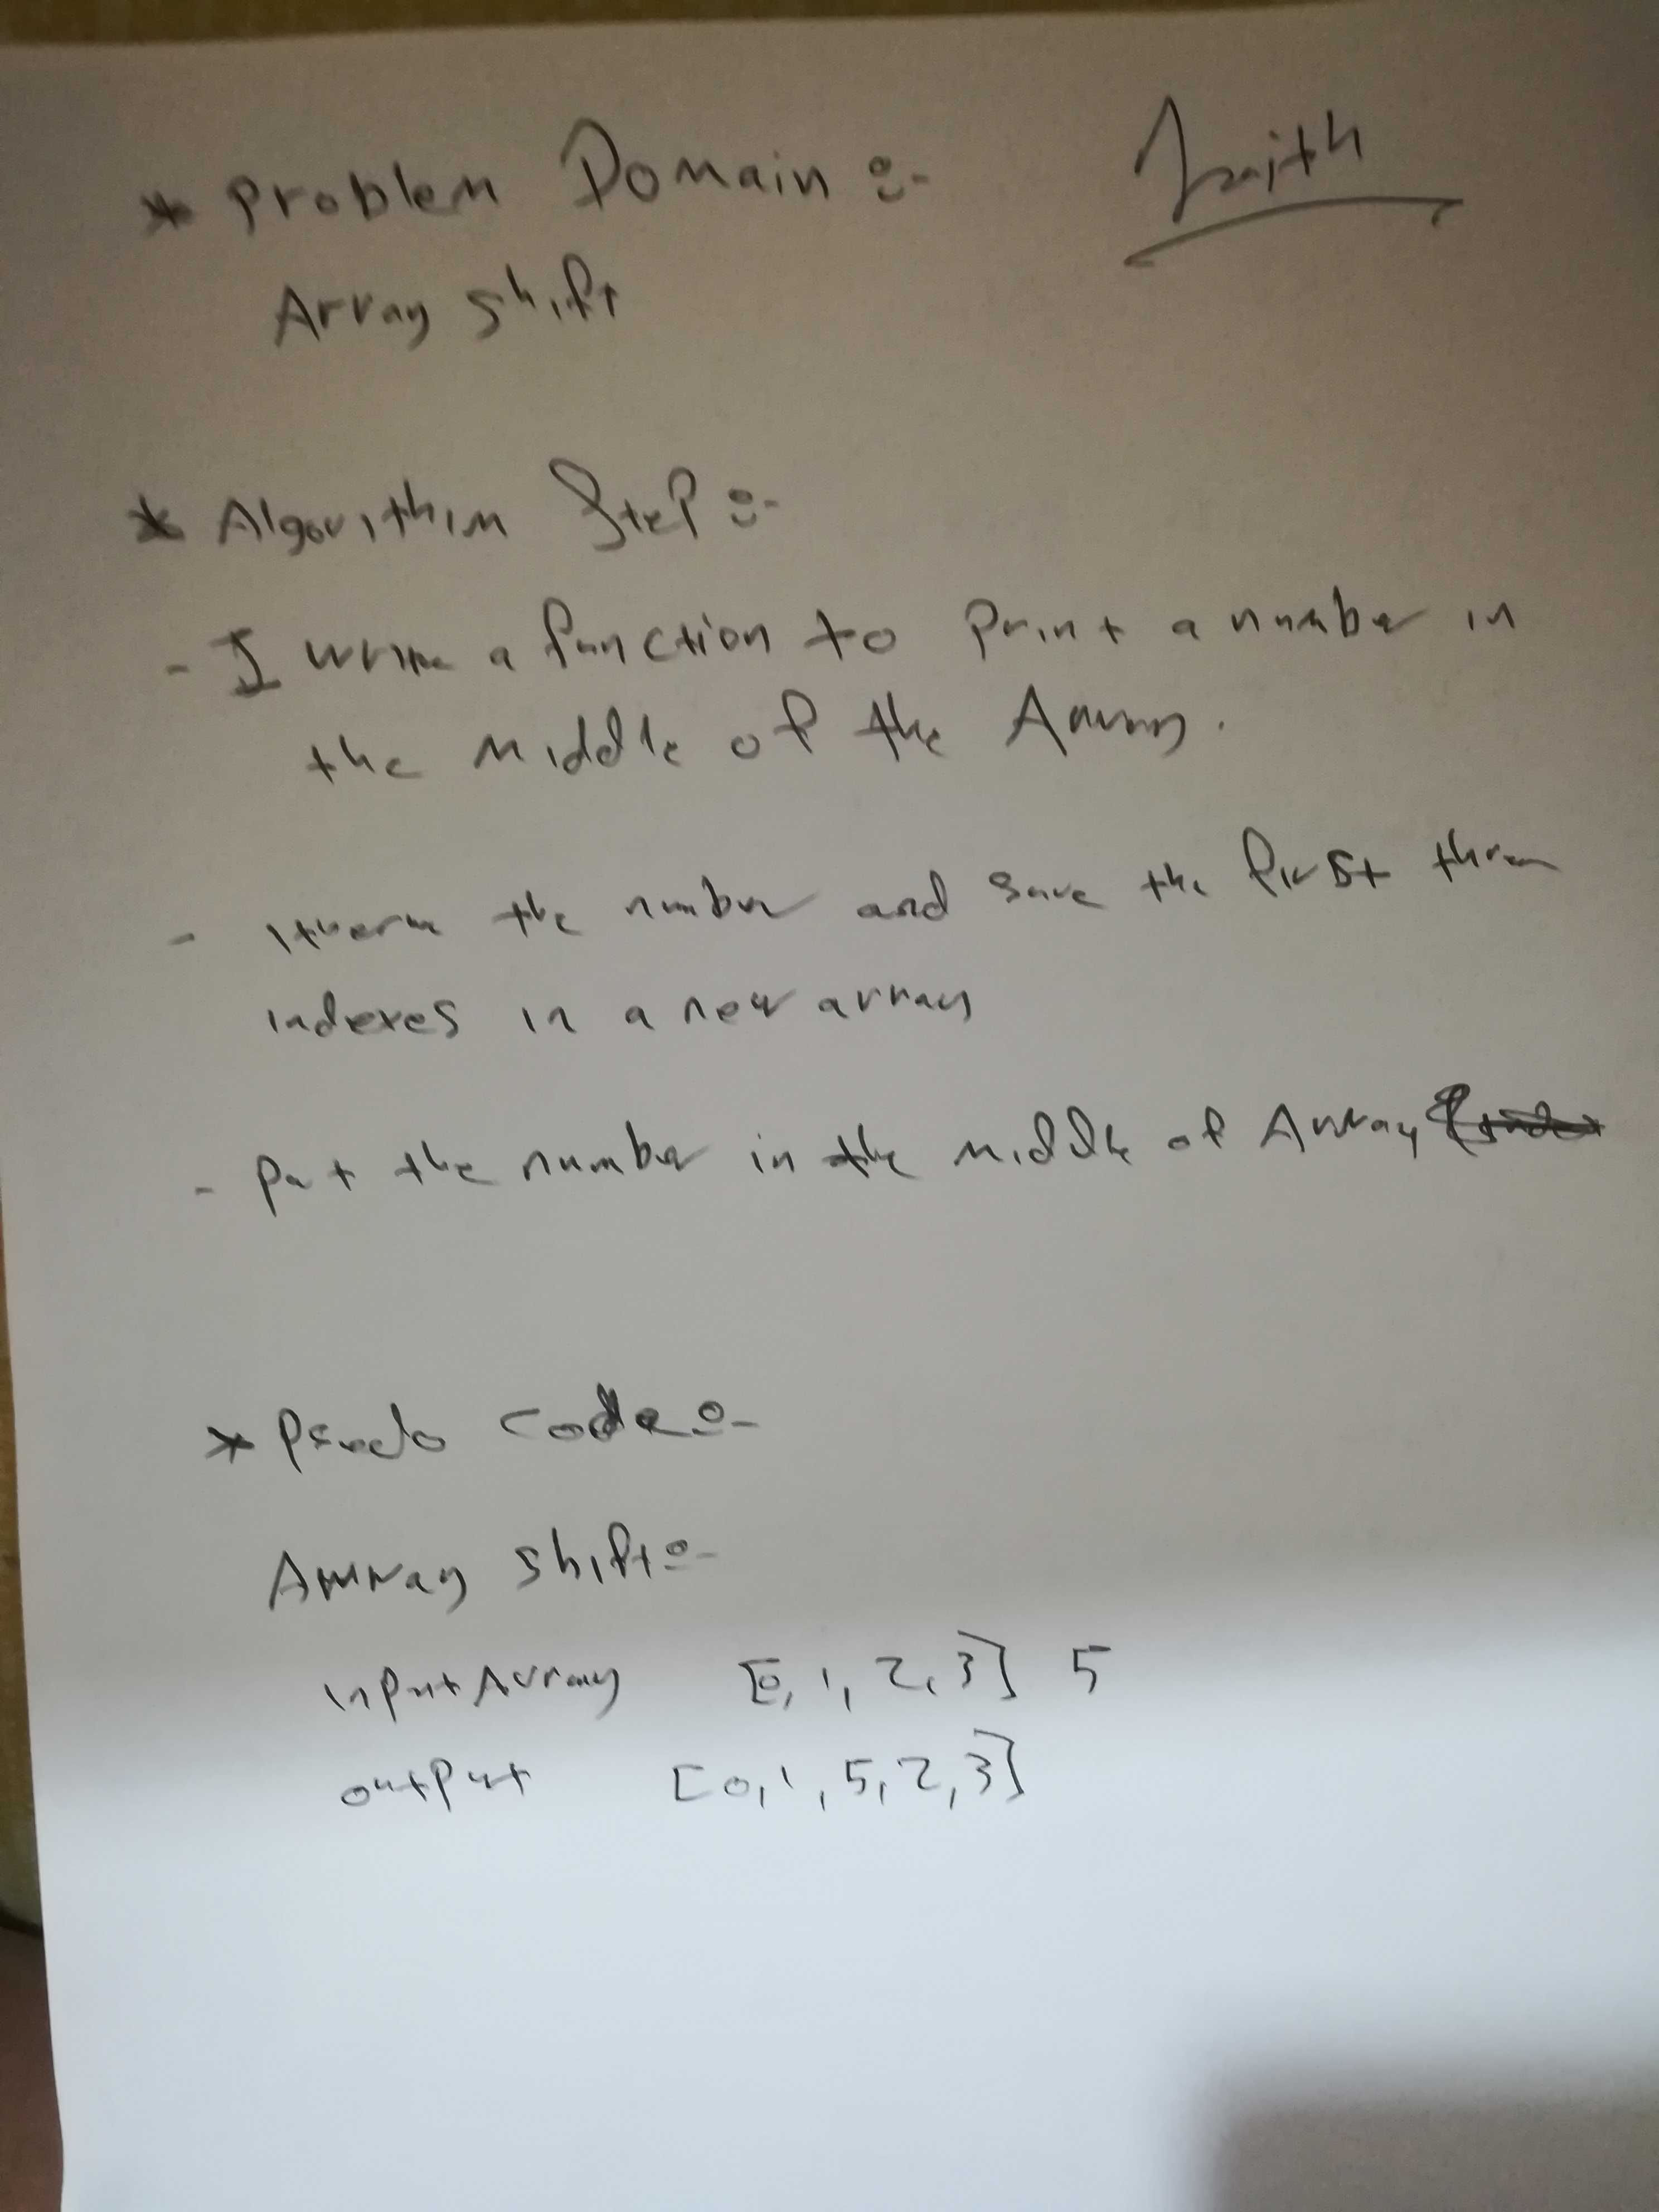 * Problem Domain :-
Array shift
* Algorithim Step :-
- I write a function to print a number in
the middle of the Array.
- the number and save the first three
indexes in a new array
- put the number in the middle of Array
* Psudo code :-
Array shift :-
input Array [0, 1, 2, 3] 5
output [0, 1, 5, 2, 3]